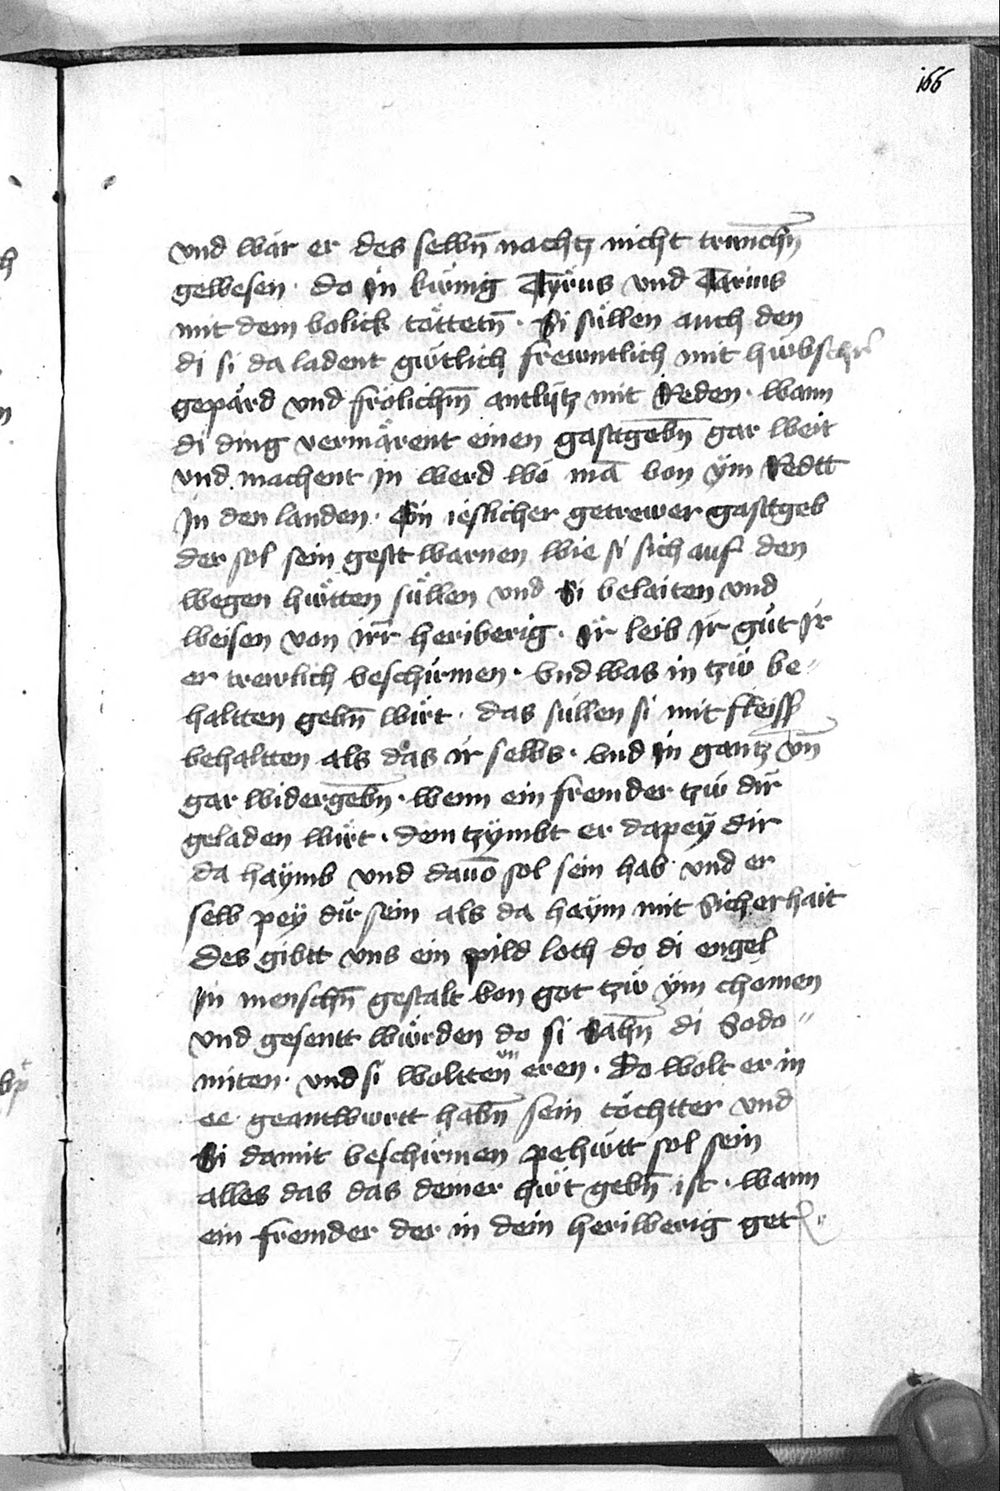 166
vnd wär er des selbn̄ nachtz nicht trunchn̄
gewesen · do in künig Tyrus vnd Darius
mit dem volick tötteten̄ · Si süllen auch den
di si da ladent gütlich frewntlich mit hübscher
gepärd vnd frölichn̄ antlytz mit Reden · wann
di ding vermärent einen gasttgebn̄ gar weit
vnd machent in werd wo mā von ym Redtt
In den landen · Ein ieslicher getrewer gasttgeb
der sol sein gestt warnen wie si sich auf den
wegen hütten süllen vnd Si belaiten vnd
weisen von irr̄ heriberig · Ir leib Ir gůt Ir
er trewlich beschirmen · vnd was in tzw be⸗
haltten gebn̄ wirt · das süllen si mit fleiss
behaltten als das ir selbs · vnd in gantz vn̄
gar widergebn̄ · wenn ein fremder tzw dir
geladen wirt · dem tzymbt er dapeÿ dir
da haÿmb vnd dauō sol sein hab vnd er
selb peÿ dir sein als da haÿm mit Sicherhait
Des gibtt vns ein pild loth do di engel
In menschn̄ gestalt von got tzw ÿm chomen
vnd gesentt würden do si Sahn̄ di Sodo⸗
miten · vnd si woltten vn eren · Do wolt er in
ee geantwurtt habn̄ sein töchtter vnd
Si damit beschirmen pehütt sol sein
alles das das deiner hüt gebn̄ ist · wann
ein fremder der in dein heriberig get